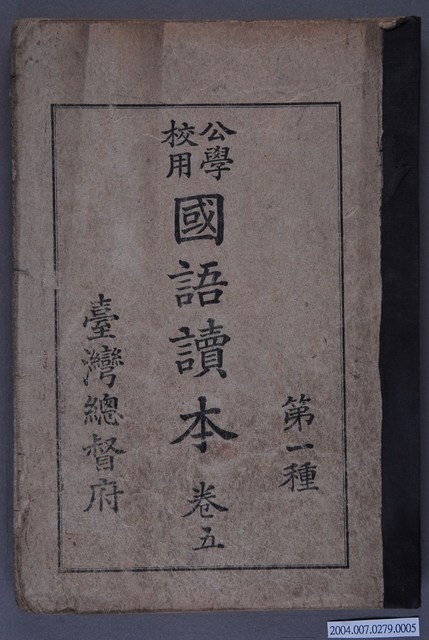 第一種
公學
校用
國語讀本 卷五
臺灣總督府
2004.007.0279.0005